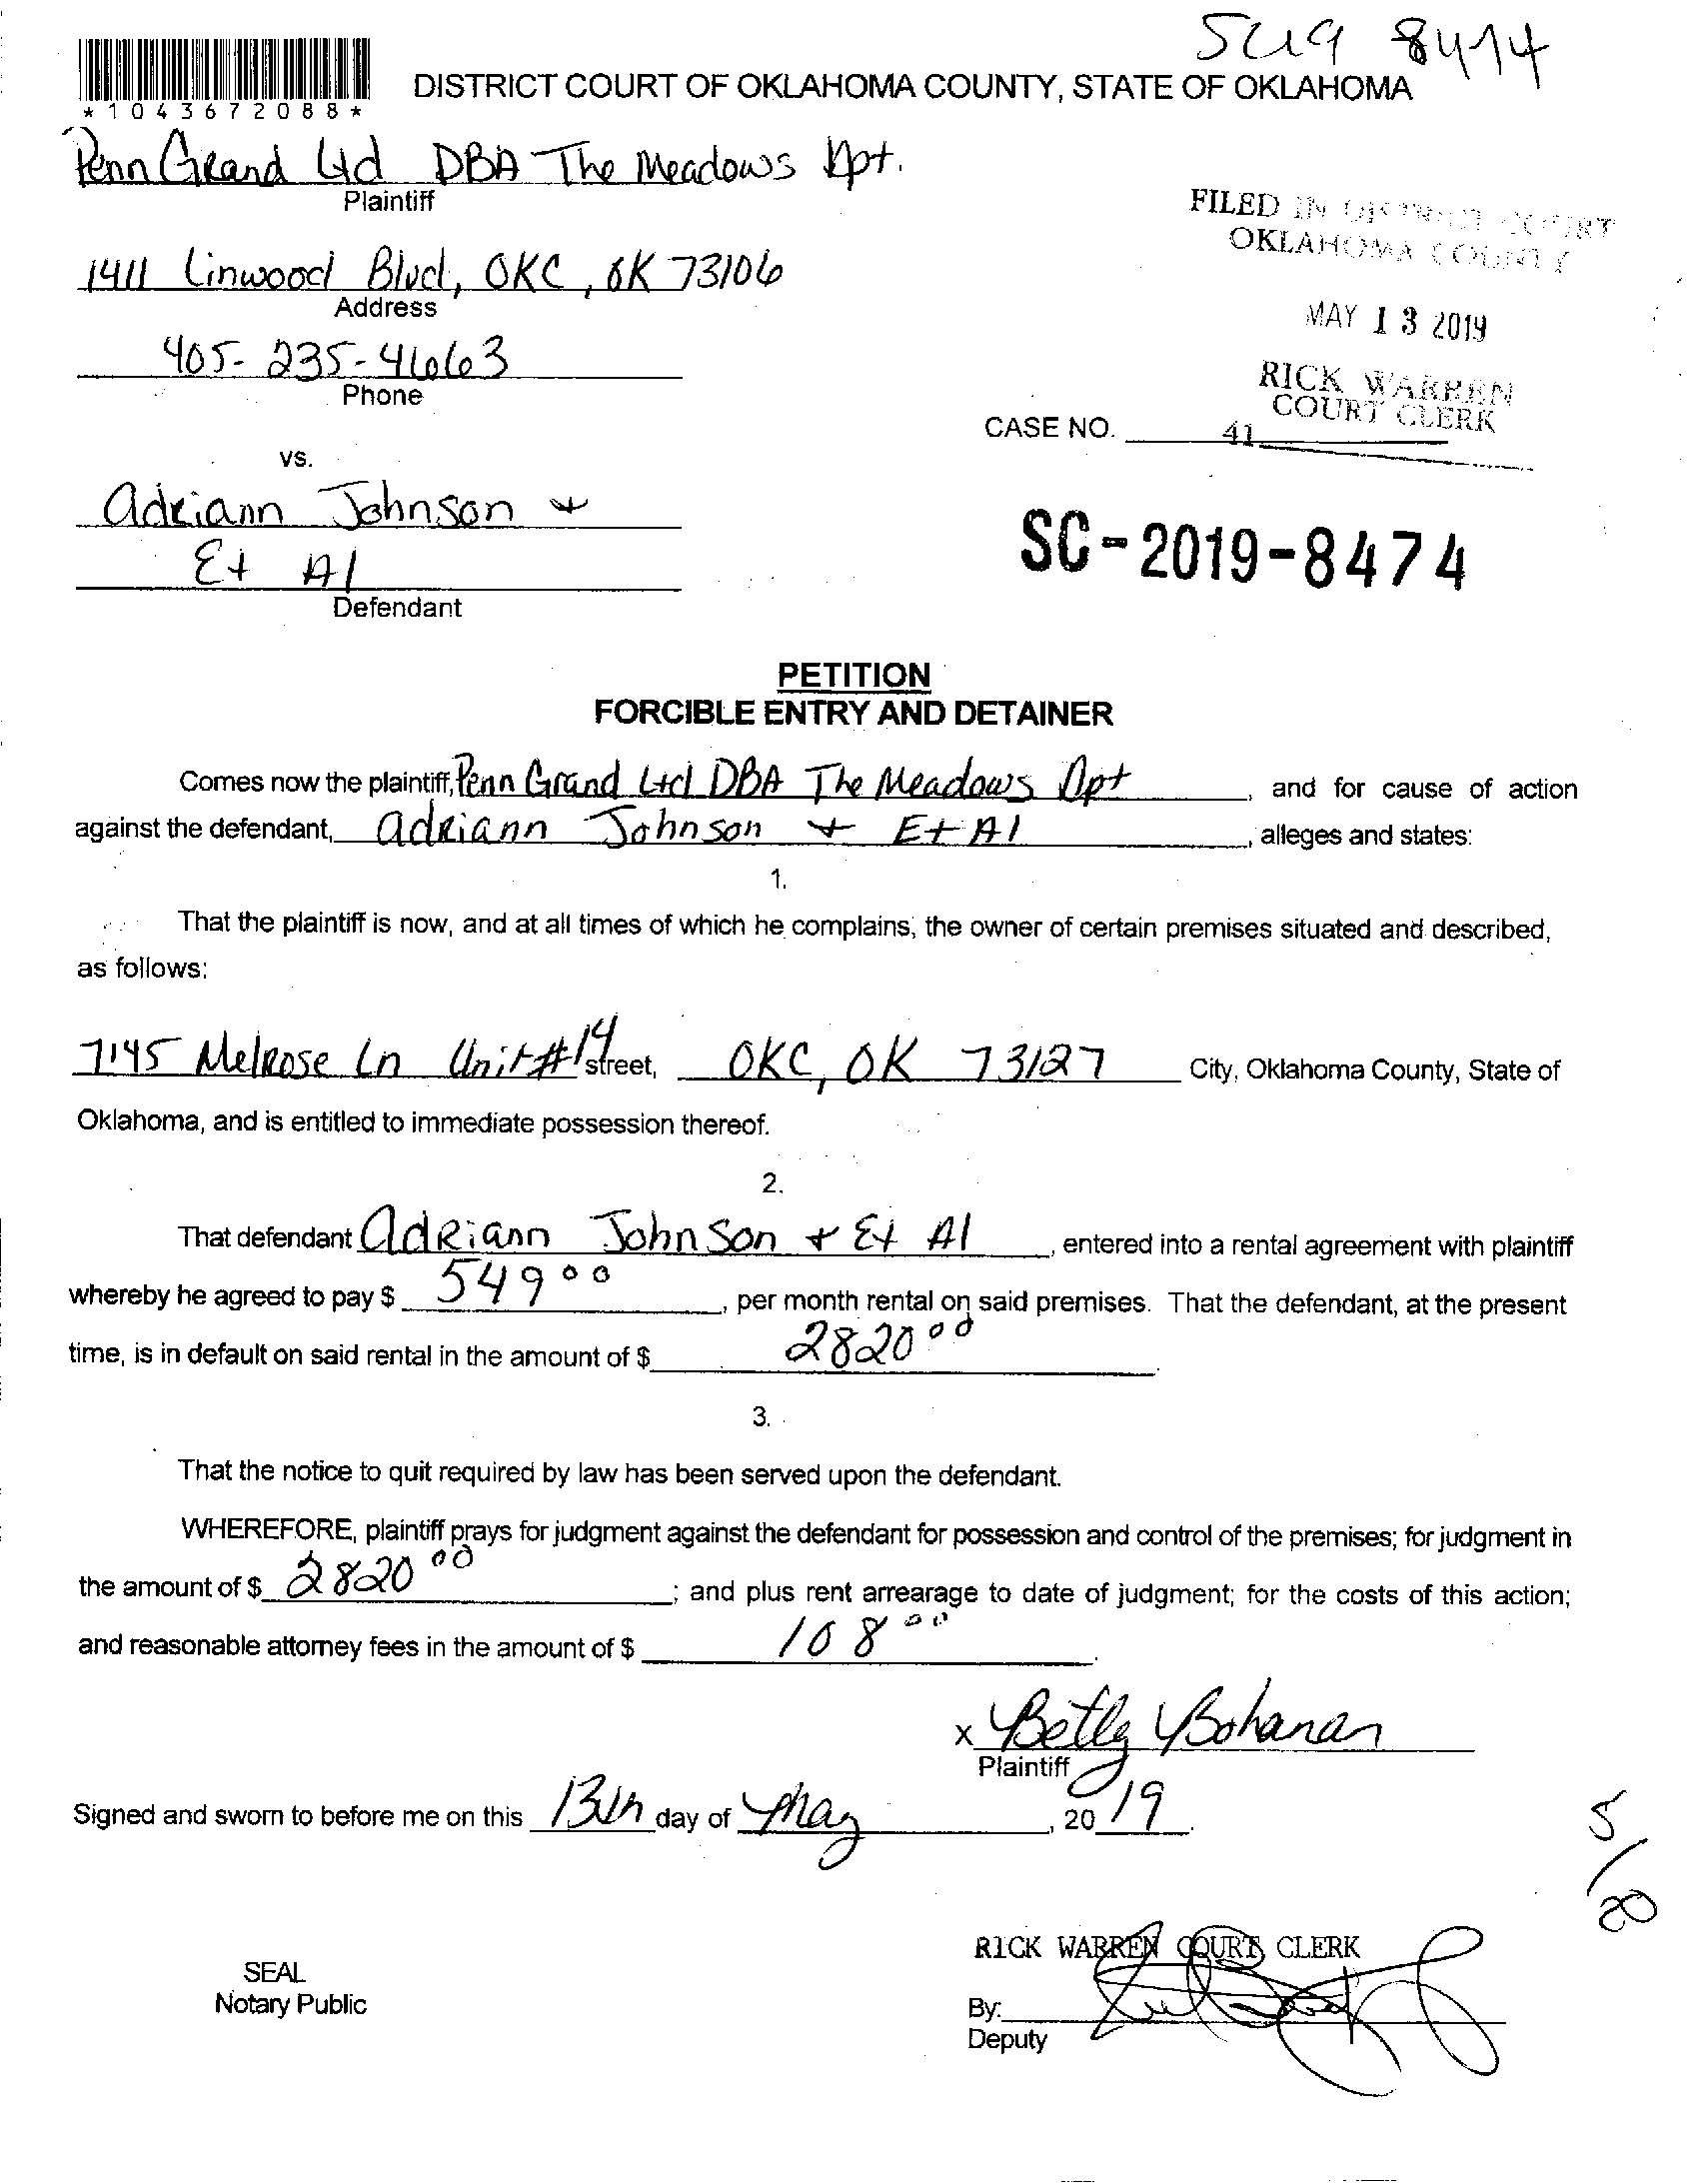 SC19 8474
*1043672088*
DISTRICT COURT OF OKLAHOMA COUNTY, STATE OF OKLAHOMA
Penn Grand Ltd DBA The Meadows Apt.
Plaintiff
FILED IN DISTRICT COURT
OKLAHOMA COUNTY
1411 Linwood Blvd, OKC, OK 73106
Address
MAY 13 2019
405-235-4663
Phone
RICK WARREN
COURT CLERK
CASE NO. 41
vs.
Adriann Johnson +
Et Al
Defendant
SC-2019-8474
PETITION
FORCIBLE ENTRY AND DETAINER
Comes now the plaintiff, Penn Grand Ltd DBA The Meadows Apt, and for cause of action
against the defendant, Adriann Johnson + Et Al, alleges and states:
1.
That the plaintiff is now, and at all times of which he complains, the owner of certain premises situated and described,
as follows:
7145 Melrose Ln Unit#14 street, OKC, OK 73127 City, Oklahoma County, State of
Oklahoma, and is entitled to immediate possession thereof.
2.
That defendant Adriann Johnson + Et Al, entered into a rental agreement with plaintiff
whereby he agreed to pay $ 549 00, per month rental on said premises. That the defendant, at the present
time, is in default on said rental in the amount of $ 2820 00.
3.
That the notice to quit required by law has been served upon the defendant.
WHEREFORE, plaintiff prays for judgment against the defendant for possession and control of the premises; for judgment in
the amount of $ 2820 00; and plus rent arrearage to date of judgment; for the costs of this action;
and reasonable attorney fees in the amount of $ 108 00.
x Betty Bohanan
Plaintiff
Signed and sworn to before me on this 13th day of May, 20 19.
5/28
RICK WARREN COURT CLERK
SEAL
Notary Public
By:
Deputy